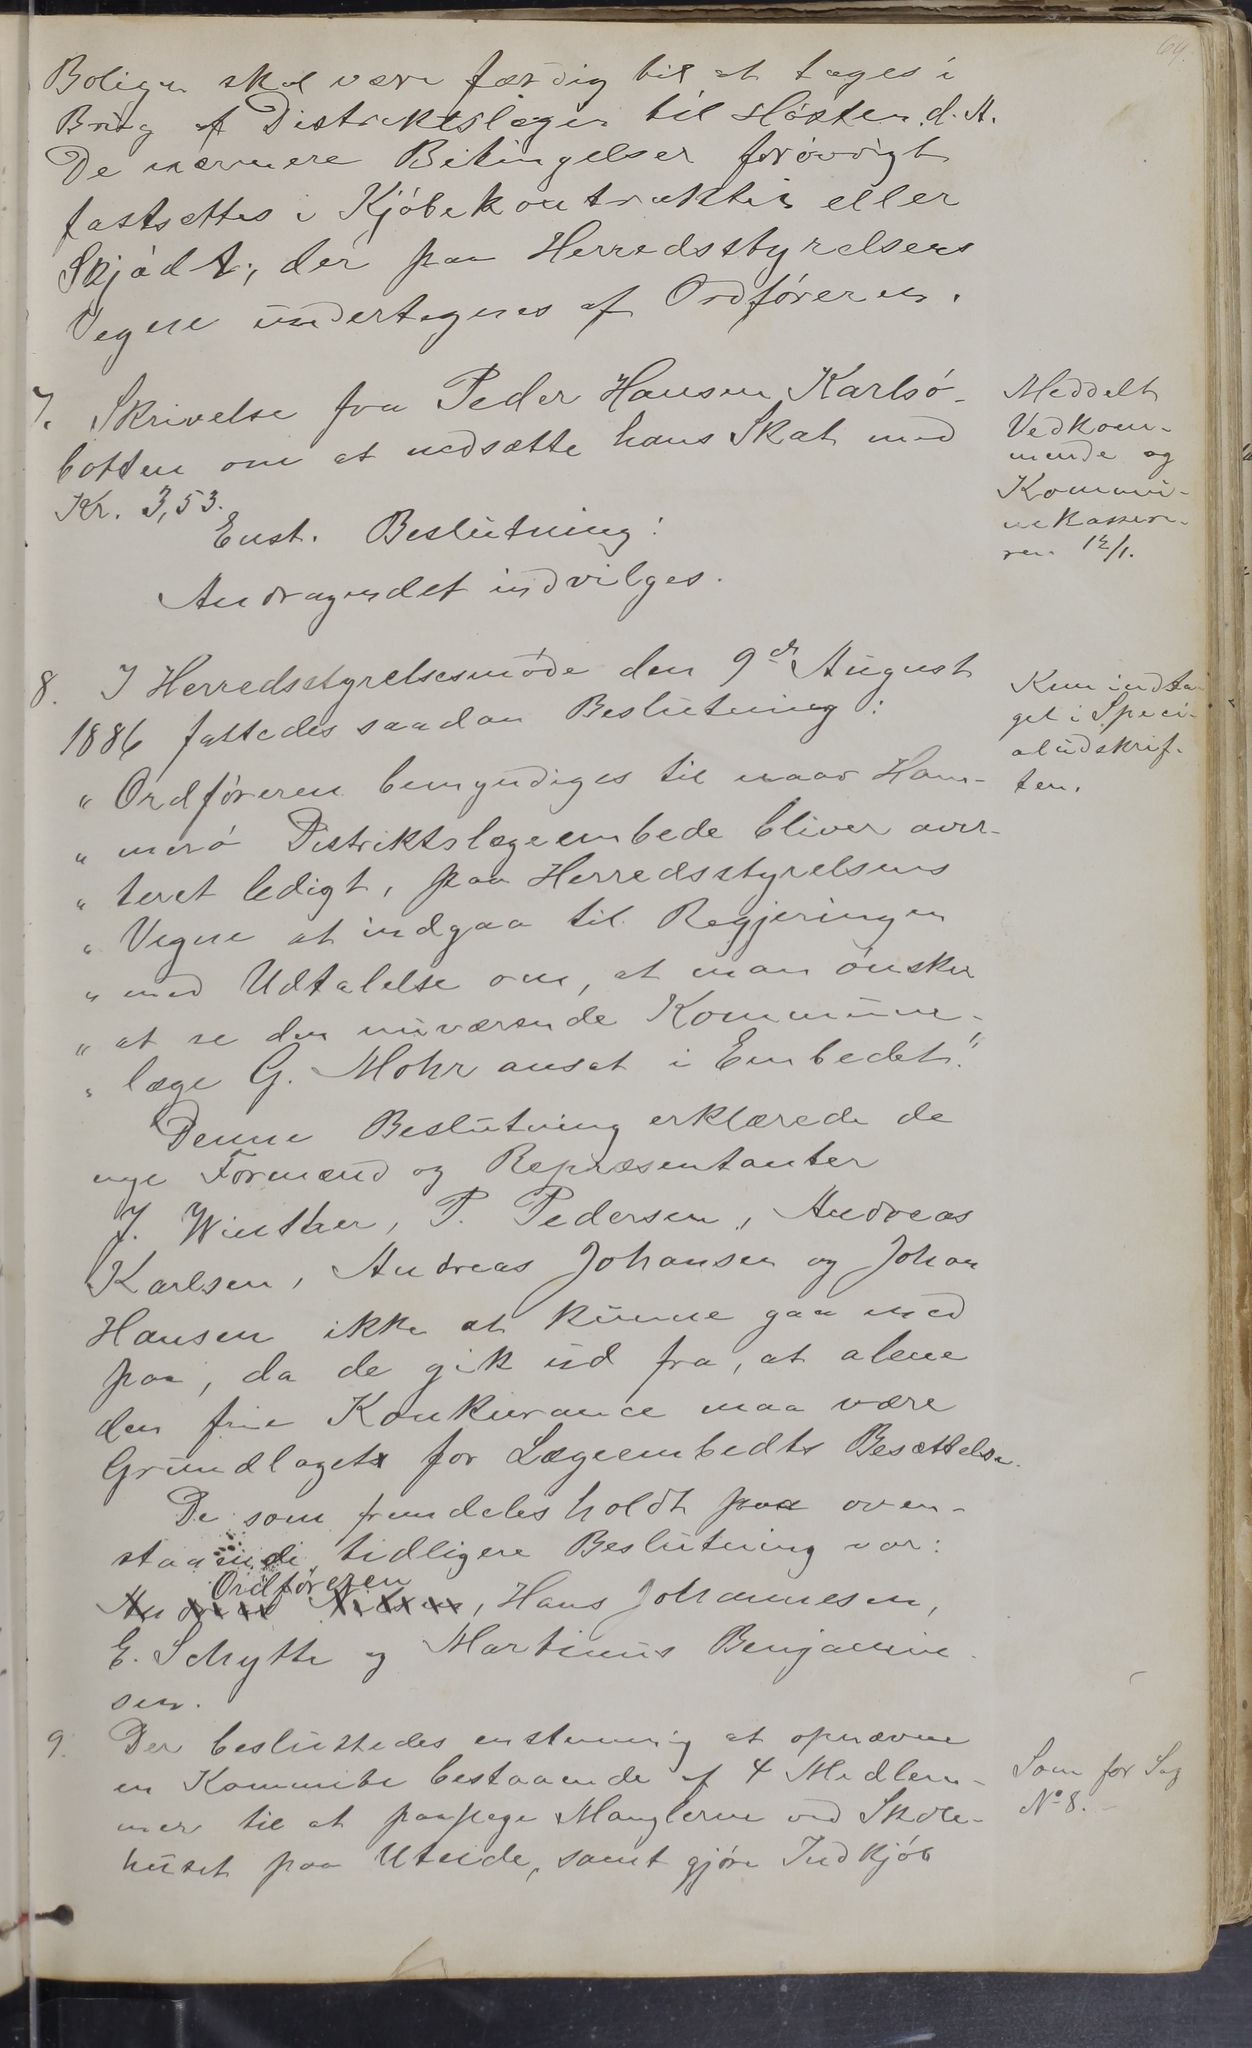 64.
Boligen skal være færdig til at tages i
Brug af Distriktslægen til Høsten d. A.
De nærmere Betingelser forøvrigt
fastsættes i Kjøbekontrakten eller
Skjødet, der paa Herredsstyrelsens
Vegne undertegnes af Ordføreren.
7. Skrivelse fra Peder Hansen Karlsø-
botten om at nedsætte hans Skat med
Kr. 3,53.
Enst. Beslutning:
Andragendet indvilges.
Meddelt
Vedkom-
mende og
Kommu-
nekasse-
ren 12/1.
8. I Herredsstyrelsesmøde den 9de August
1886 fattedes saadan Beslutning:
" Ordføreren bemyndiges til naar Ham-
" merø Distriktslægeembede bliver aver-
" teret ledigt, paa Herredsstyrelsens
" Vegne at indgaa til Regjeringen
" med Udtalelse om, at man ønsker
" at se den nuværende Kommune-
" læge G. Mohr ansat i Embedet."
Kun indta-
get i Speci-
aludskrif-
ten.
Denne Beslutning erklærede de
nye Formænd og Repræsentanter
J. Winther, P. Pedersen, Andreas
Karlsen, Andreas Johansen og Johan
Hansen ikke at kunne gaa med
paa, da de gik ud fra, at alene
den frie Konkurance maa være
Grundlaget for Lægeembedts Besættelse.
De som fremdeles holdt paa oven-
staaende tidligere Beslutning var:
Ordføreren
, Hans Johannesen,
E. Schytte og Martinus Benjamin-
sen.
9. Der besluttedes enstemmig at opnævne
en Kommite bestaaende af 4 Medlem-
mer til at paapege Manglerne ved Skole-
huset paa Uteide, samt gjøre Indkjøb
Som for Sag
No 8.